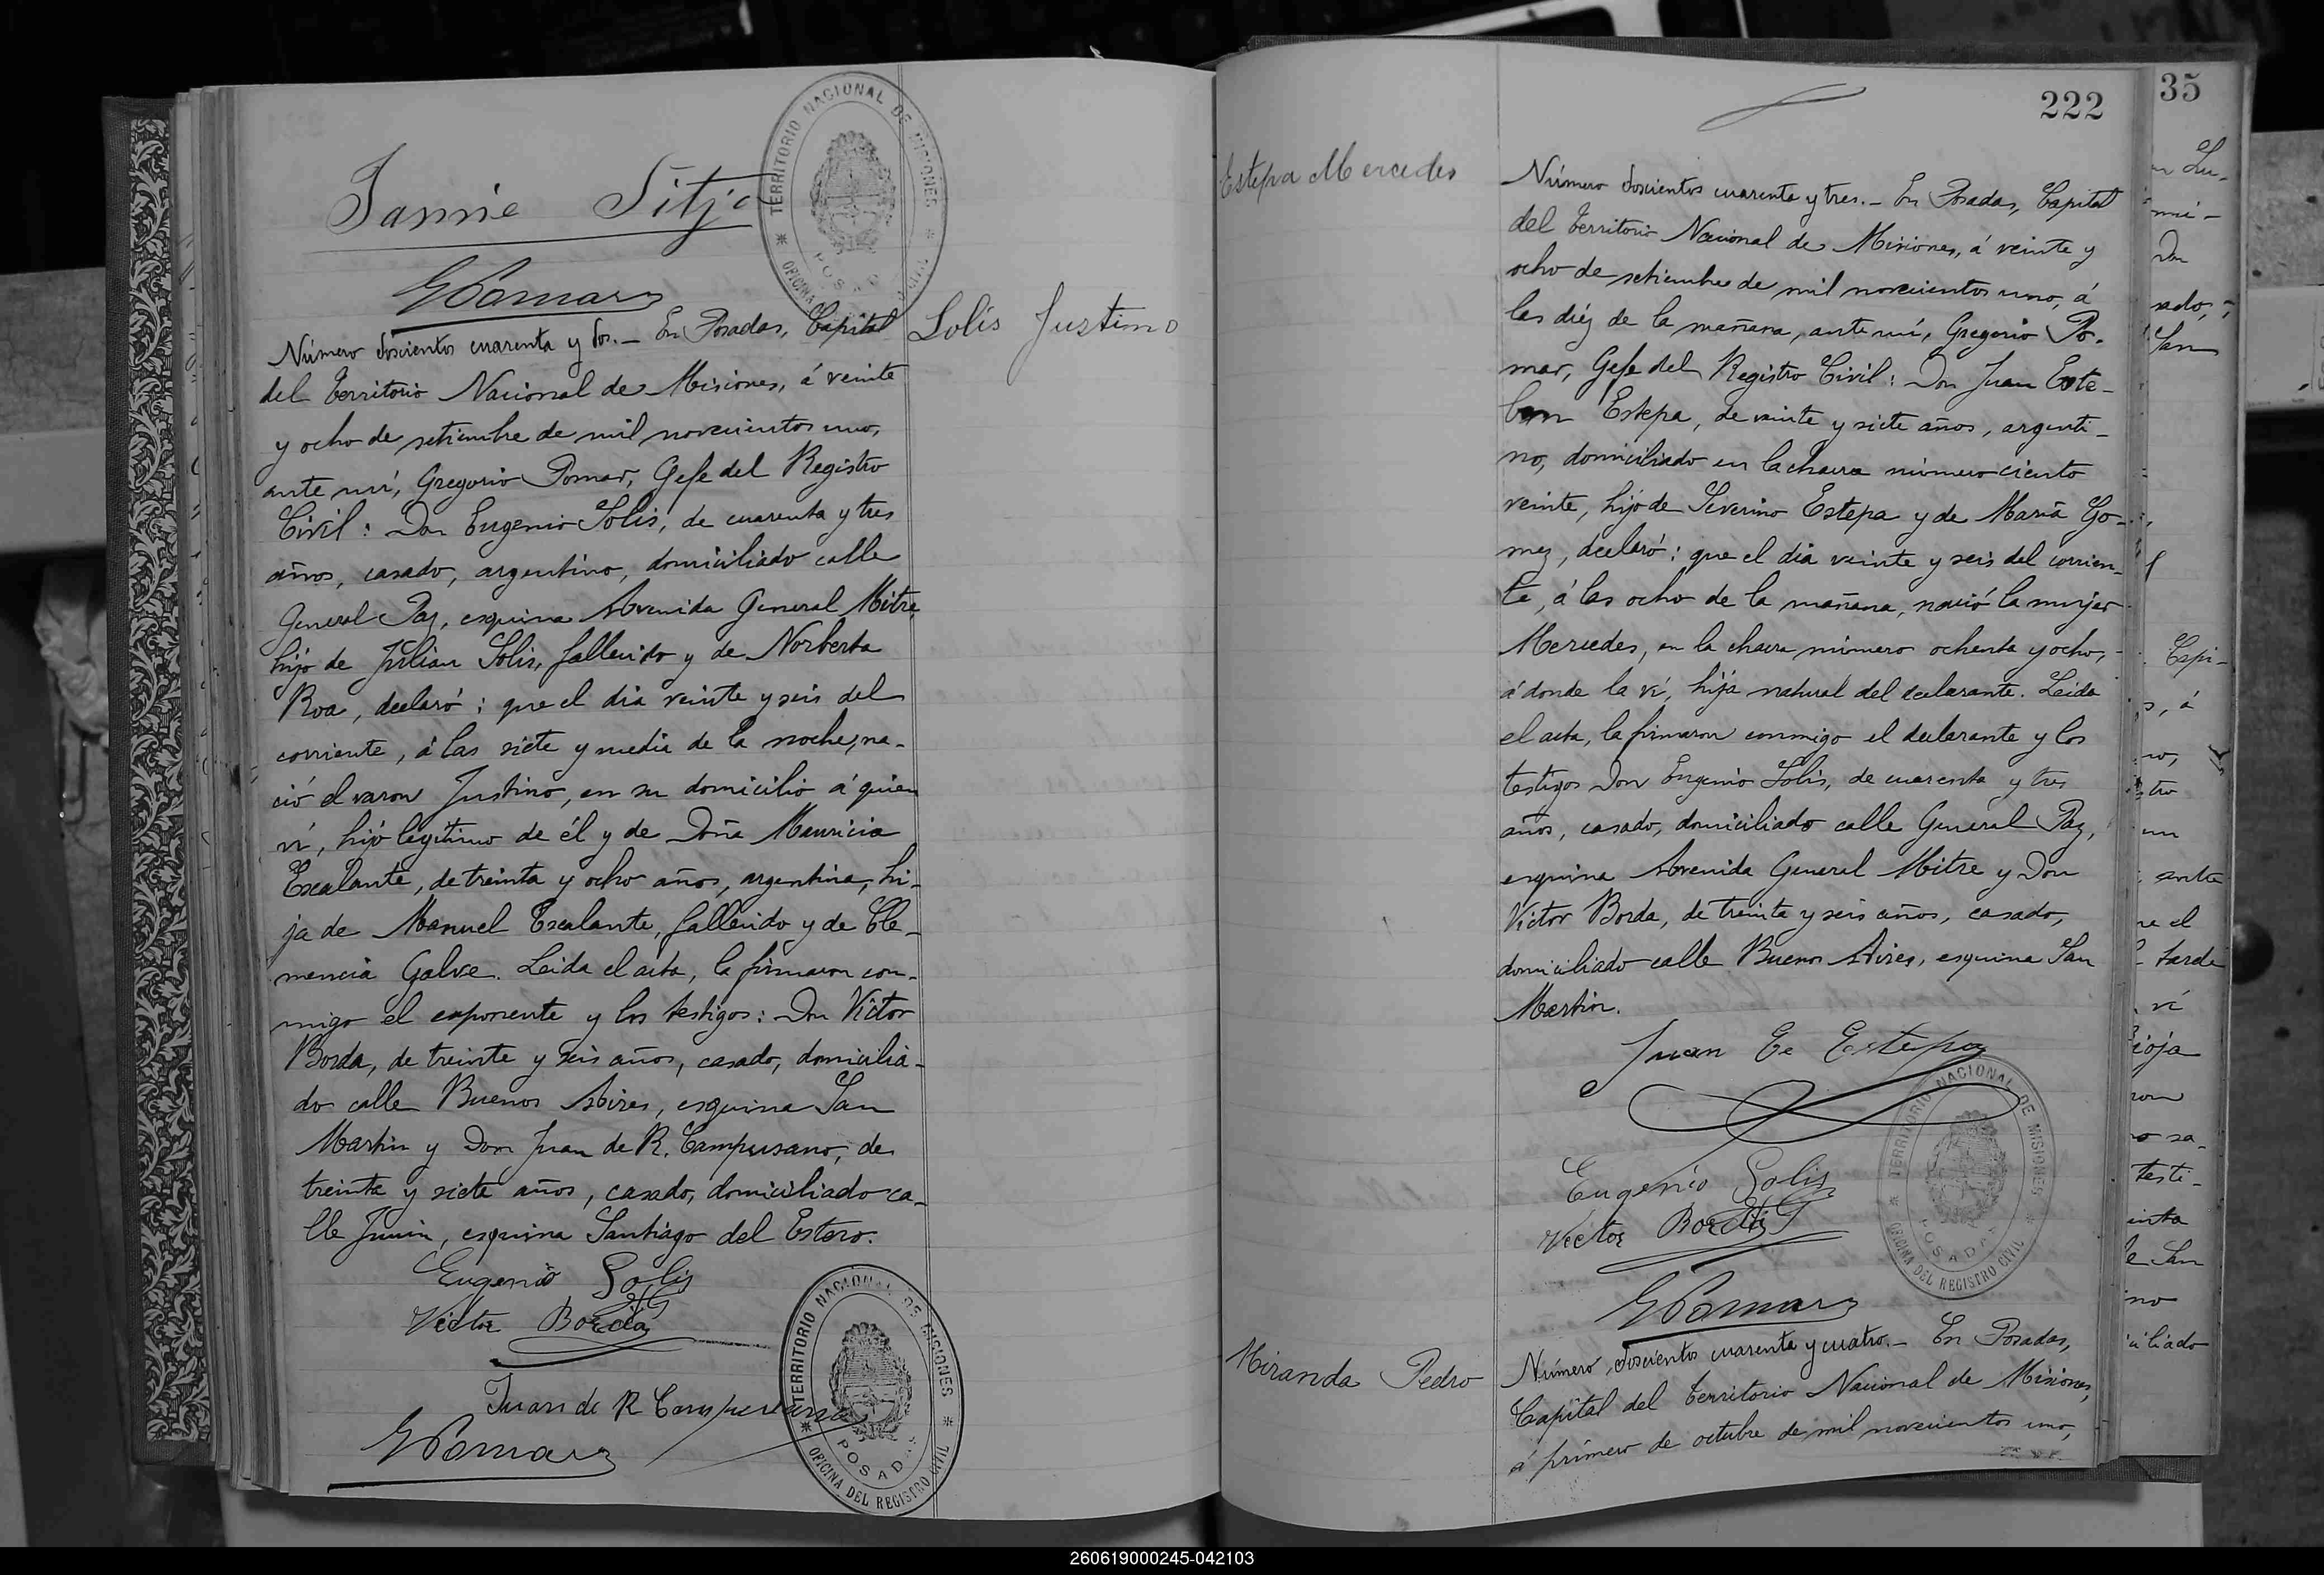 Jannie Sitjo
TERRITORIO NACIONAL DE MISIONES
POSADAS
OFICINA DEL REGISTRO CIVIL
GPomar
Solis Justino
Número doscientos cuarenta y dos.- En Posadas, Capital
del Territorio Nacional de Misiones, á veinte
y ocho de setiembre de mil novecientos uno,
ante mí, Gregorio Pomar, Gefe del Registro
Civil: Don Eugenio Solis, de cuarenta y tres
años, casado, argentino, domiciliado calle
General Paz, esquina Avenida General Mitre,
hijo de Julian Solis, fallecido y de Norberta
Roa, declaró: que el dia veinte y seis del
corriente, á las siete y media de la noche, na-
ció el varon Justino, en su domicilio á quien
ví, hijo legítimo de él y de Doña Mauricia
Escalante, de treinta y ocho años, argentina, hi-
ja de Manuel Escalante, fallecido y de Cle-
mencia Galve. Leida el acta, la firmaron con-
migo el exponente y los testigos: Don Victor
Borda, de treinta y seis años, casado, domicilia-
do calle Buenos Aires, esquina San
Martin y Don Juan de R. Campusano, de
treinta y siete años, casado, domiciliado ca-
lle Junin, esquina Santiago del Estero.
Eugenio Solis
Victor Borda
Juan de R Campusano
GPomar
TERRITORIO NACIONAL DE MISIONES
POSADAS
OFICINA DEL REGISTRO CIVIL
222
Estepa Mercedes
Número doscientos cuarenta y tres.- En Posadas, Capital
del Territorio Nacional de Misiones, á veinte y
ocho de setiembre de mil novecientos uno, á
las diéz de la mañana, ante mí, Gregorio Po-
mar, Gefe del Registro Civil: Don Juan Este-
ban Estepa, de veinte y siete años, argenti-
no, domiciliado en la chacra número ciento
veinte, hijo de Severino Estepa y de María Go-
mez, declaró: que el dia veinte y seis del corrien-
te, á las ocho de la mañana, nació la mujer
Mercedes, en la chacra número ochenta y ocho,
á donde la ví, hija natural del declarante. Leida
el acta, la firmaron conmigo el declarante y los
testigos Don Eugenio Solis, de cuarenta y tres
años, casado, domiciliado calle General Paz,
esquina Avenida General Mitre y Don
Victor Borda, de treinta y seis años, casado,
domiciliado calle Buenos Aires, esquina San
Martin.
Juan E. Estepa
Eugenio Solis
Victor Borda
TERRITORIO NACIONAL DE MISIONES
POSADAS
OFICINA DEL REGISTRO CIVIL
GPomar
Miranda Pedro
Número doscientos cuarenta y cuatro.- En Posadas,
Capital del Territorio Nacional de Misiones,
á primero de octubre de mil novecientos uno,
35
Don
sado,
San
Espi-
s, á
no,
stro
ante
ue el
tarde
ví
ioja
ron
testi-
inta
e San
no
iciliado
260619000245-042103